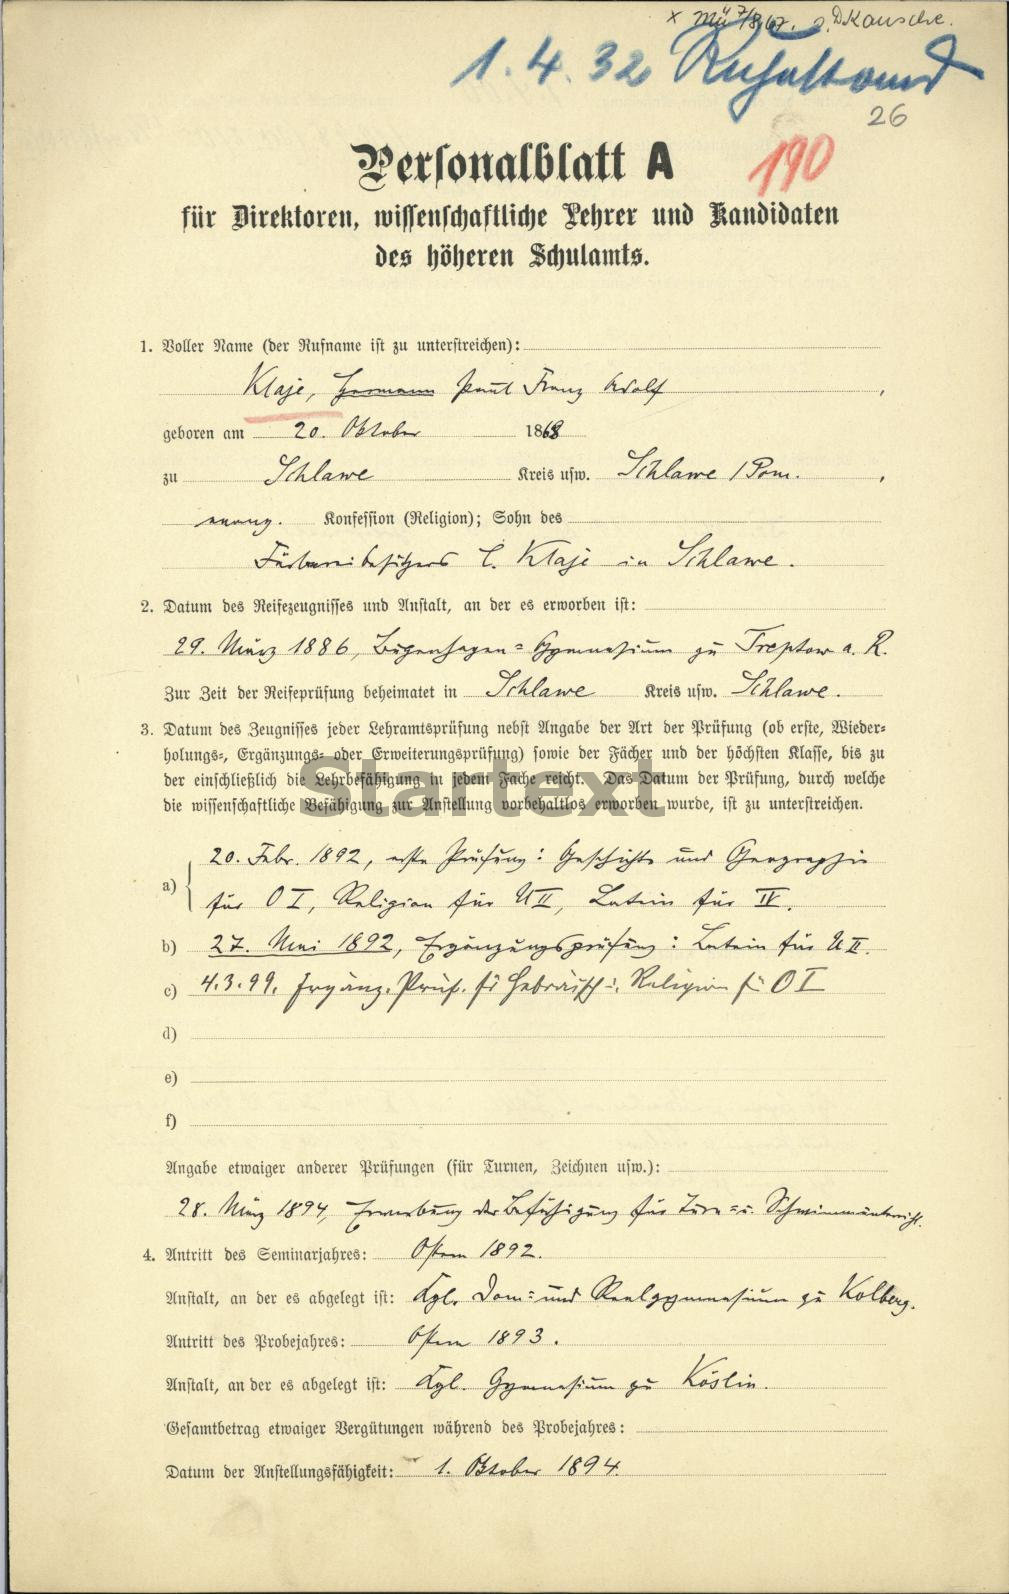 x Mü 7/8.67. D. Kausche.
1. 4. 32 Ruhestand
26
Personalblatt A
190
für Direktoren, wissenschaftliche Lehrer und Kandidaten
des höheren Schulamts.
1. Voller Name (der Rufname ist zu unterstreichen):
Klaje, Hermann Paul Franz Adolf,
geboren am 20. Oktober 1868
zu Schlawe Kreis usw. Schlawe / Pom.,
evang. Konfession (Religion); Sohn des
Färbereibesitzers C. Klaje in Schlawe.
2. Datum des Reifezeugnisses und Anstalt, an der es erworben ist:
29. März 1886, Bugenhagen-Gymnasium zu Treptow a. R.
Zur Zeit der Reifeprüfung beheimatet in Schlawe Kreis usw. Schlawe.
3. Datum des Zeugnisses jeder Lehramtsprüfung nebst Angabe der Art der Prüfung (ob erste, Wieder-
holungs-, Ergänzungs- oder Erweiterungsprüfung) sowie der Fächer und der höchsten Klasse, bis zu
der einschließlich die Lehrbefähigung in jedem Fache reicht. Das Datum der Prüfung, durch welche
die wissenschaftliche Befähigung zur Anstellung vorbehaltlos erworben wurde, ist zu unterstreichen.
Startext
20. Febr. 1892, erste Prüfung: Geschichte und Geographie
a) für O I, Religion für U II, Latein für IV.
b) 27. Mai 1892, Ergänzungsprüfung: Latein für U II.
c) 4.3.99. Ergänz. Prüf. für Hebräisch u. Religion f. O I
d)
e)
f)
Angabe etwaiger anderer Prüfungen (für Turnen, Zeichnen usw.):
28. März 1894, Erwerbung der Befähigung für Turn- u. Schwimmunterricht.
4. Antritt des Seminarjahres: Ostern 1892.
Anstalt, an der es abgelegt ist: Kgl. Dom- und Realgymnasium zu Kolberg.
Antritt des Probejahres: Ostern 1893.
Anstalt, an der es abgelegt ist: Kgl. Gymnasium zu Köslin.
Gesamtbetrag etwaiger Vergütungen während des Probejahres:
Datum der Anstellungsfähigkeit: 1. Oktober 1894.